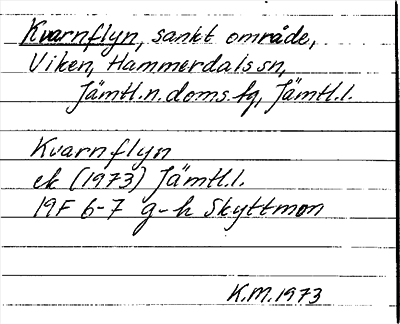 Kvarnflyn, sankt område,
Viken, Hammerdals sn,
Jämtl.n.doms.fg, Jämtl.l.
Kvarnflyn
ek (1973) Jämtl.l.
19F 6-7 g-h Skyttmon
K.M.1973